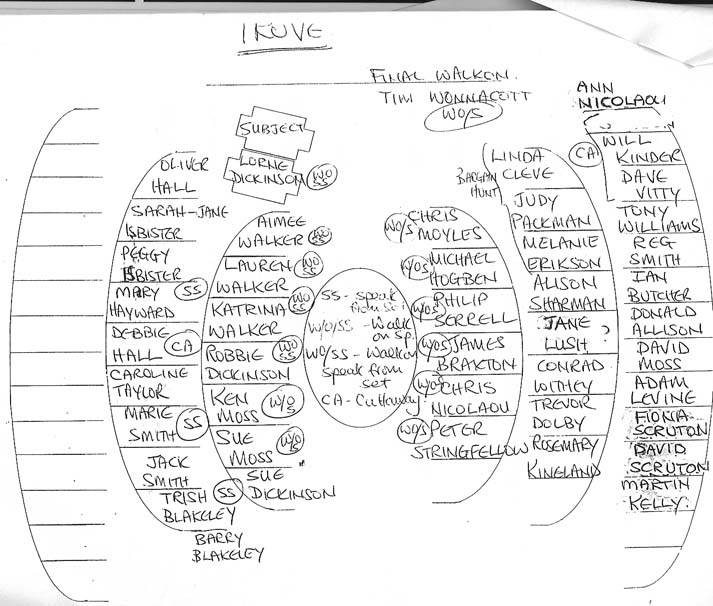 FINAL WALKON.
TIM WONNACOTT
WO/S
ANN
NICOLAOU
SUBJECT
LORNE
DICKINSON
WO
SS
OLIVER
HALL
SARAH-JANE
ISBISTER
PEGGY
ISBISTER
MARY
HAYWARD
SS
DEBBIE
HALL
CA
CAROLINE
TAYLOR
MARIE
SMITH
SS
JACK
SMITH
TRISH
BLAKELEY
SS
BARRY
BLAKELEY
AIMEE
WALKER
WO
SS
LAUREN
WALKER
WO
SS
KATRINA
WALKER
WO
SS
ROBBIE
DICKINSON
WO
SS
KEN
MOSS
W/O
S
SUE
MOSS
W/O
S
SUE
DICKINSON
SS - Speak
from Set
W/O/SS - Walk
on Sp
WO/SS - Walkon
speak from
set
CA - Cutaway
WO/S
CHRIS
MOYLES
WO/S
MICHAEL
HOGBEN
WO/S
PHILIP
SERRELL
WO/S
JAMES
BRAXTON
WO/S
CHRIS
NICOLAOU
WO/S
PETER
STRINGFELLOW
BARGAN
HUNT
LINDA
CLEVE
JUDY
PACKMAN
MELANIE
ERIKSON
ALISON
SHARMAN
JANE
LUSH ?
CONRAD
WITHEY
TREVOR
DOLBY
ROSEMARY
KINGLAND
CA
WILL
KINDER
DAVE
VITTY
TONY
WILLIAMS
REG
SMITH
IAN
BUTCHER
DONALD
ALLISON
DAVID
MOSS
ADAM
LEVINE
FIONIA
SCRUTON
DAVID
SCRUTON
MARTIN
KELLY.